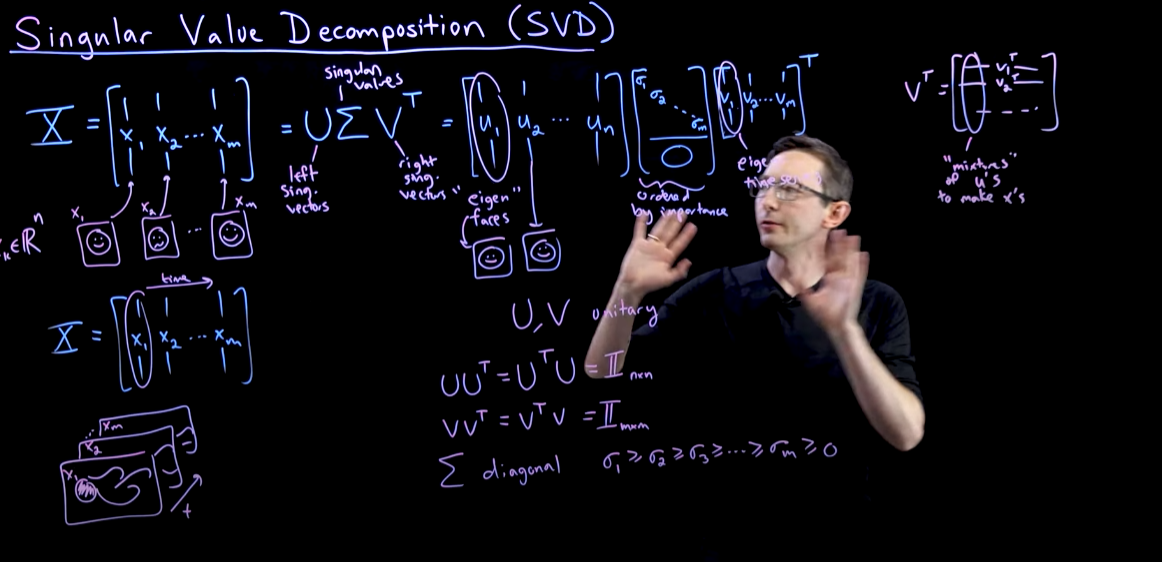 Singular Value Decomposition (SVD)
X = [x₁ x₂ ⋯ xₘ] = U Σ Vᵀ = [u₁ u₂ ⋯ uₙ] [σ₁ σ₂ ⋱ σₘ 0] [v₁ v₂ ⋯ vₘ]ᵀ
singular values
left sing. vectors
right sing. vectors
"eigen" faces
ordered
by importance
Vᵀ = [v₁ᵀ v₂ᵀ ⋯]
"mixtures"
of u's
to make x's
∈ ℝⁿ
x₁ x₂ ⋯ xₘ
time
X = [x₁ x₂ ⋯ xₘ]
xₘ
x₂
x₁
t
U, V unitary
UUᵀ = UᵀU = 𝕀ₙₓₙ
VVᵀ = VᵀV = 𝕀ₘₓₘ
Σ diagonal σ₁ ≥ σ₂ ≥ σ₃ ≥ ⋯ ≥ σₘ ≥ 0